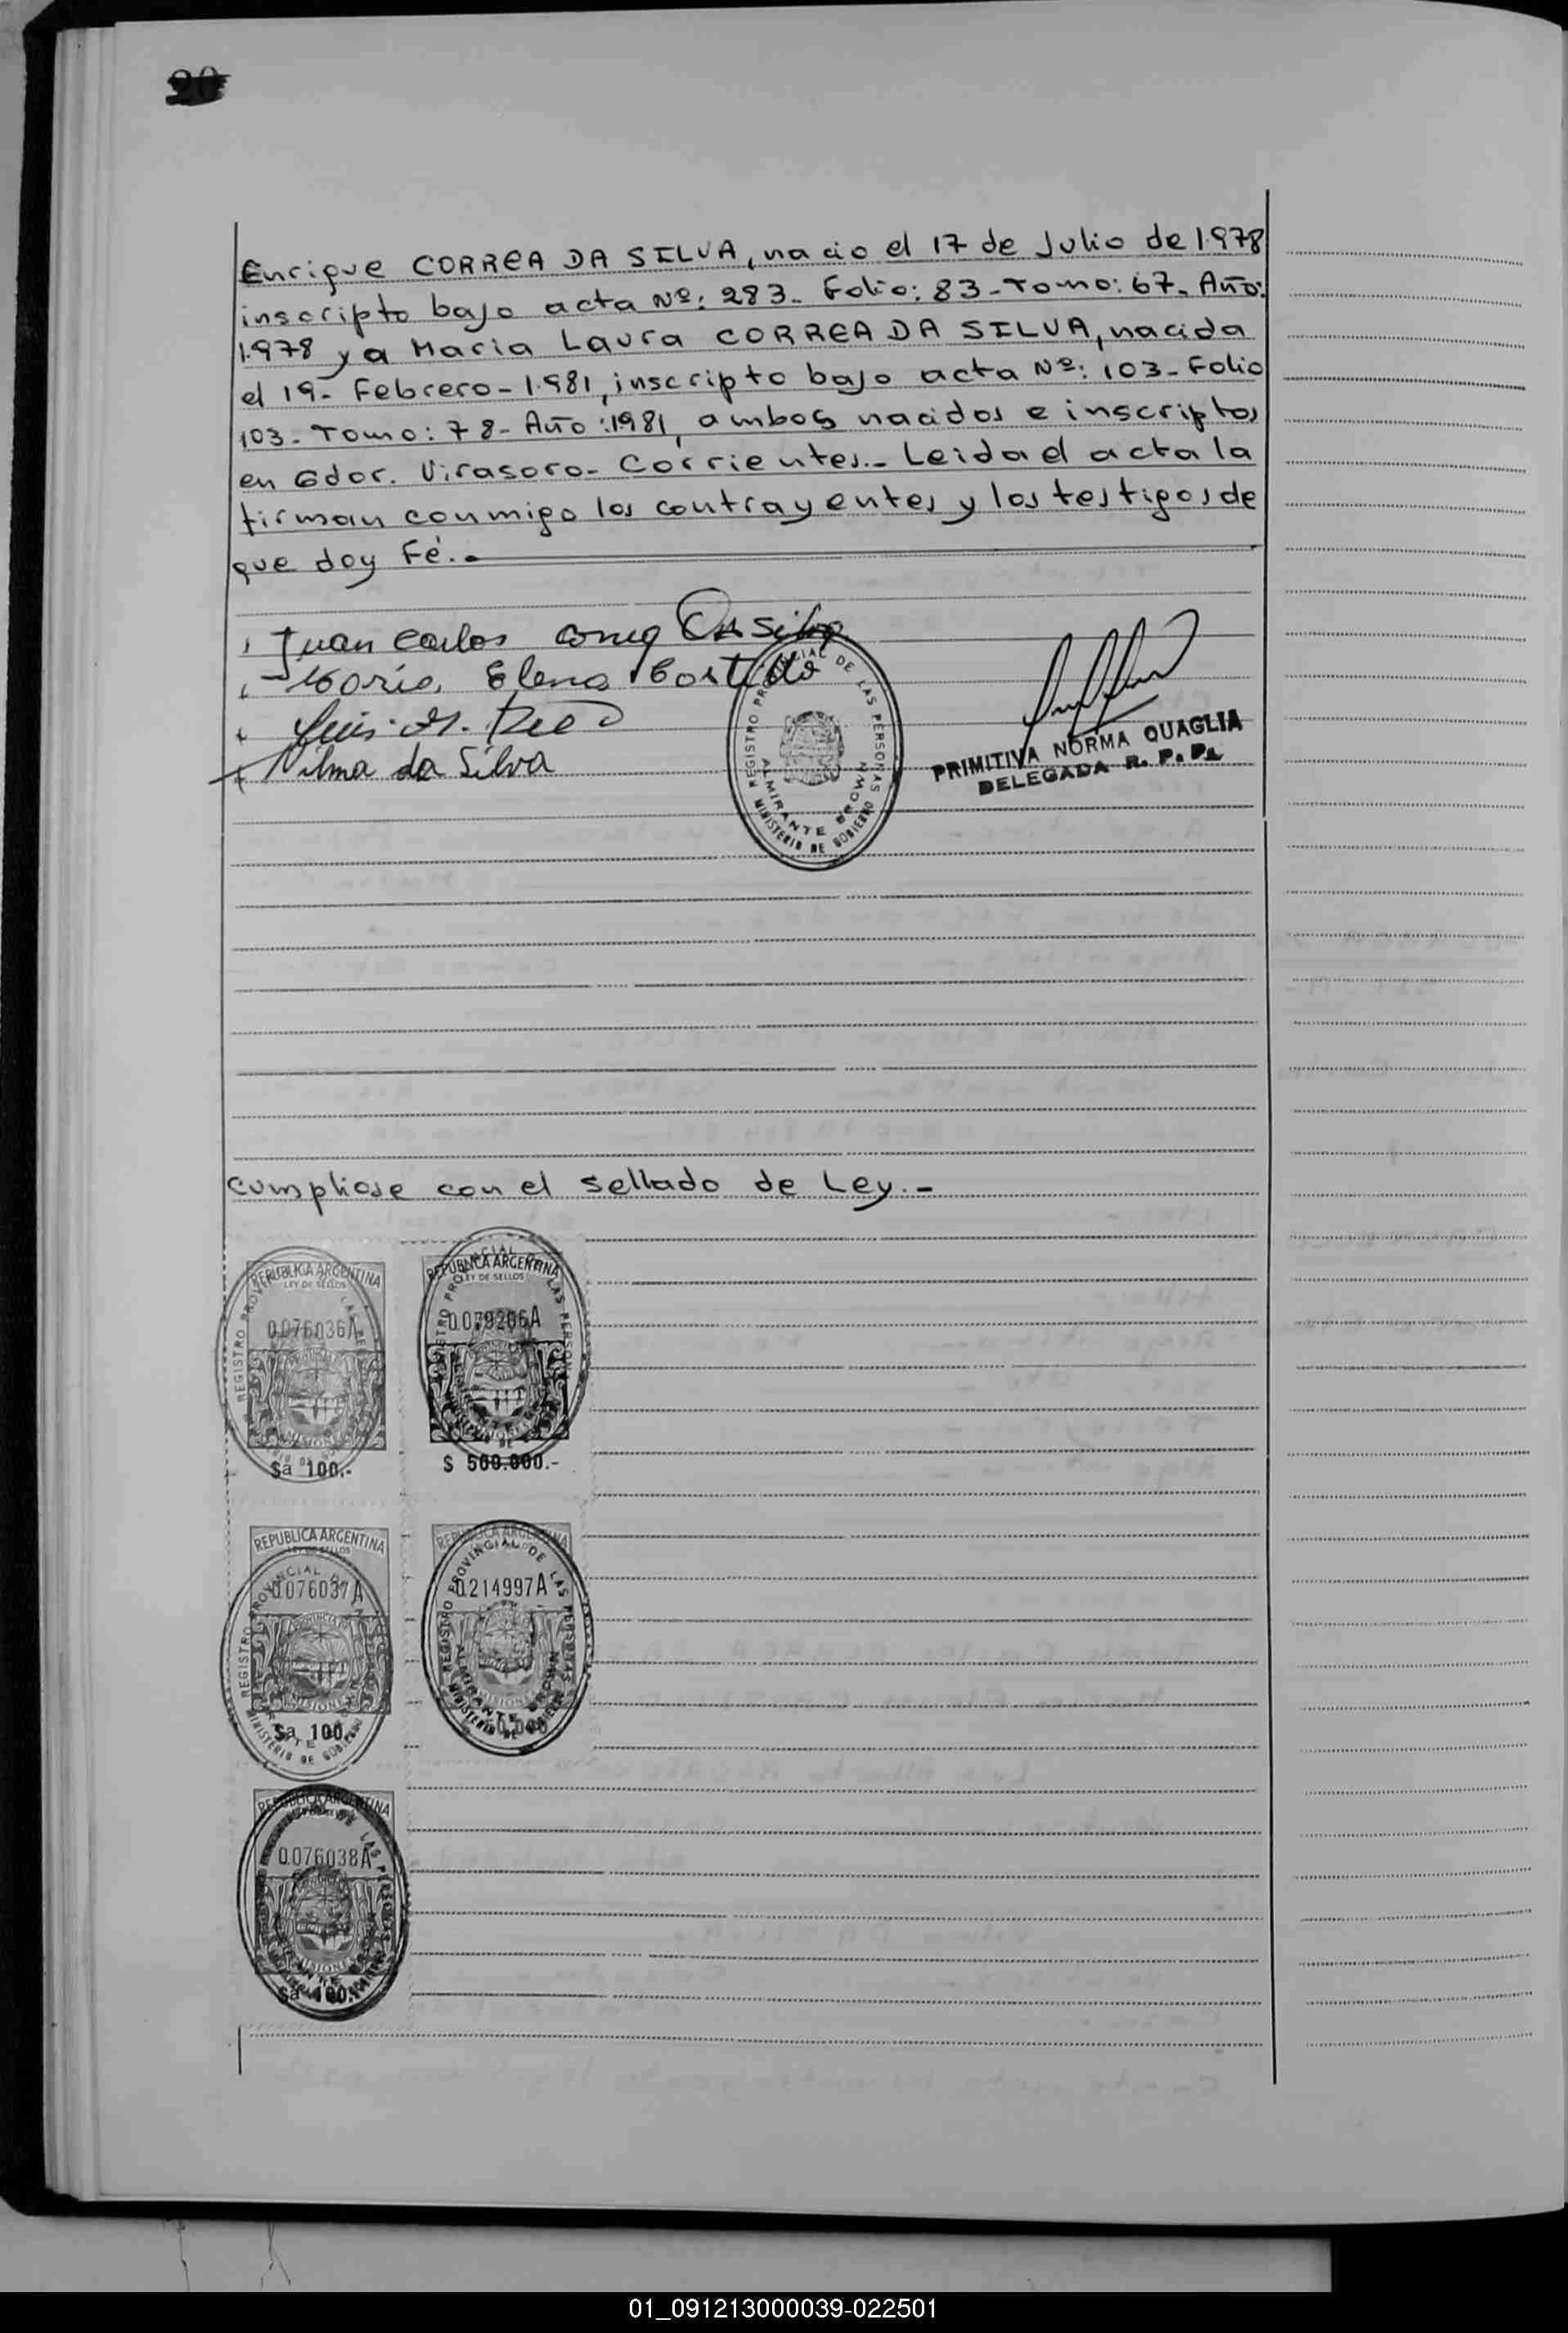 20
Enrique CORREA DA SILVA, nacio el 17 de Julio de 1.978
inscripto bajo acta Nº: 283. Folio: 83 - Tomo: 67. Año:
1.978 y a Maria Laura CORREA DA SILVA, nacida
el 19 - Febrero - 1.981, inscripto bajo acta Nº: 103 - Folio
103 - Tomo: 78 - Año: 1981, ambos nacidos e inscriptos
en Gdor. Virasoro - Corrientes.- Leida el acta la
firman conmigo los contrayentes y los testigos de
que doy Fé.-
Juan Carlos Da Silva
María Elena
Luis
Vilma da Silva
REGISTRO PROVINCIAL DE LAS PERSONAS
ALMIRANTE BROWN
MINISTERIO DE GOBIERNO
PRIMITIVA NORMA QUAGLIA
DELEGADA R. P. P.
cumpliose con el sellado de Ley.-
REPUBLICA ARGENTINA
LEY DE SELLOS
0.076036A
MISIONES
$a 100.-
REPUBLICA ARGENTINA
LEY DE SELLOS
0.079206A
MISIONES
$ 500.000.-
REPUBLICA ARGENTINA
LEY DE SELLOS
0.076037A
MISIONES
$a 100.
REPUBLICA ARGENTINA
0.214997A
MISIONES
REGISTRO PROVINCIAL DE LAS PERSONAS
ALMIRANTE BROWN
MINISTERIO DE GOBIERNO
REPUBLICA ARGENTINA
0.076038A
MISIONES
$a 100.
01_091213000039-022501